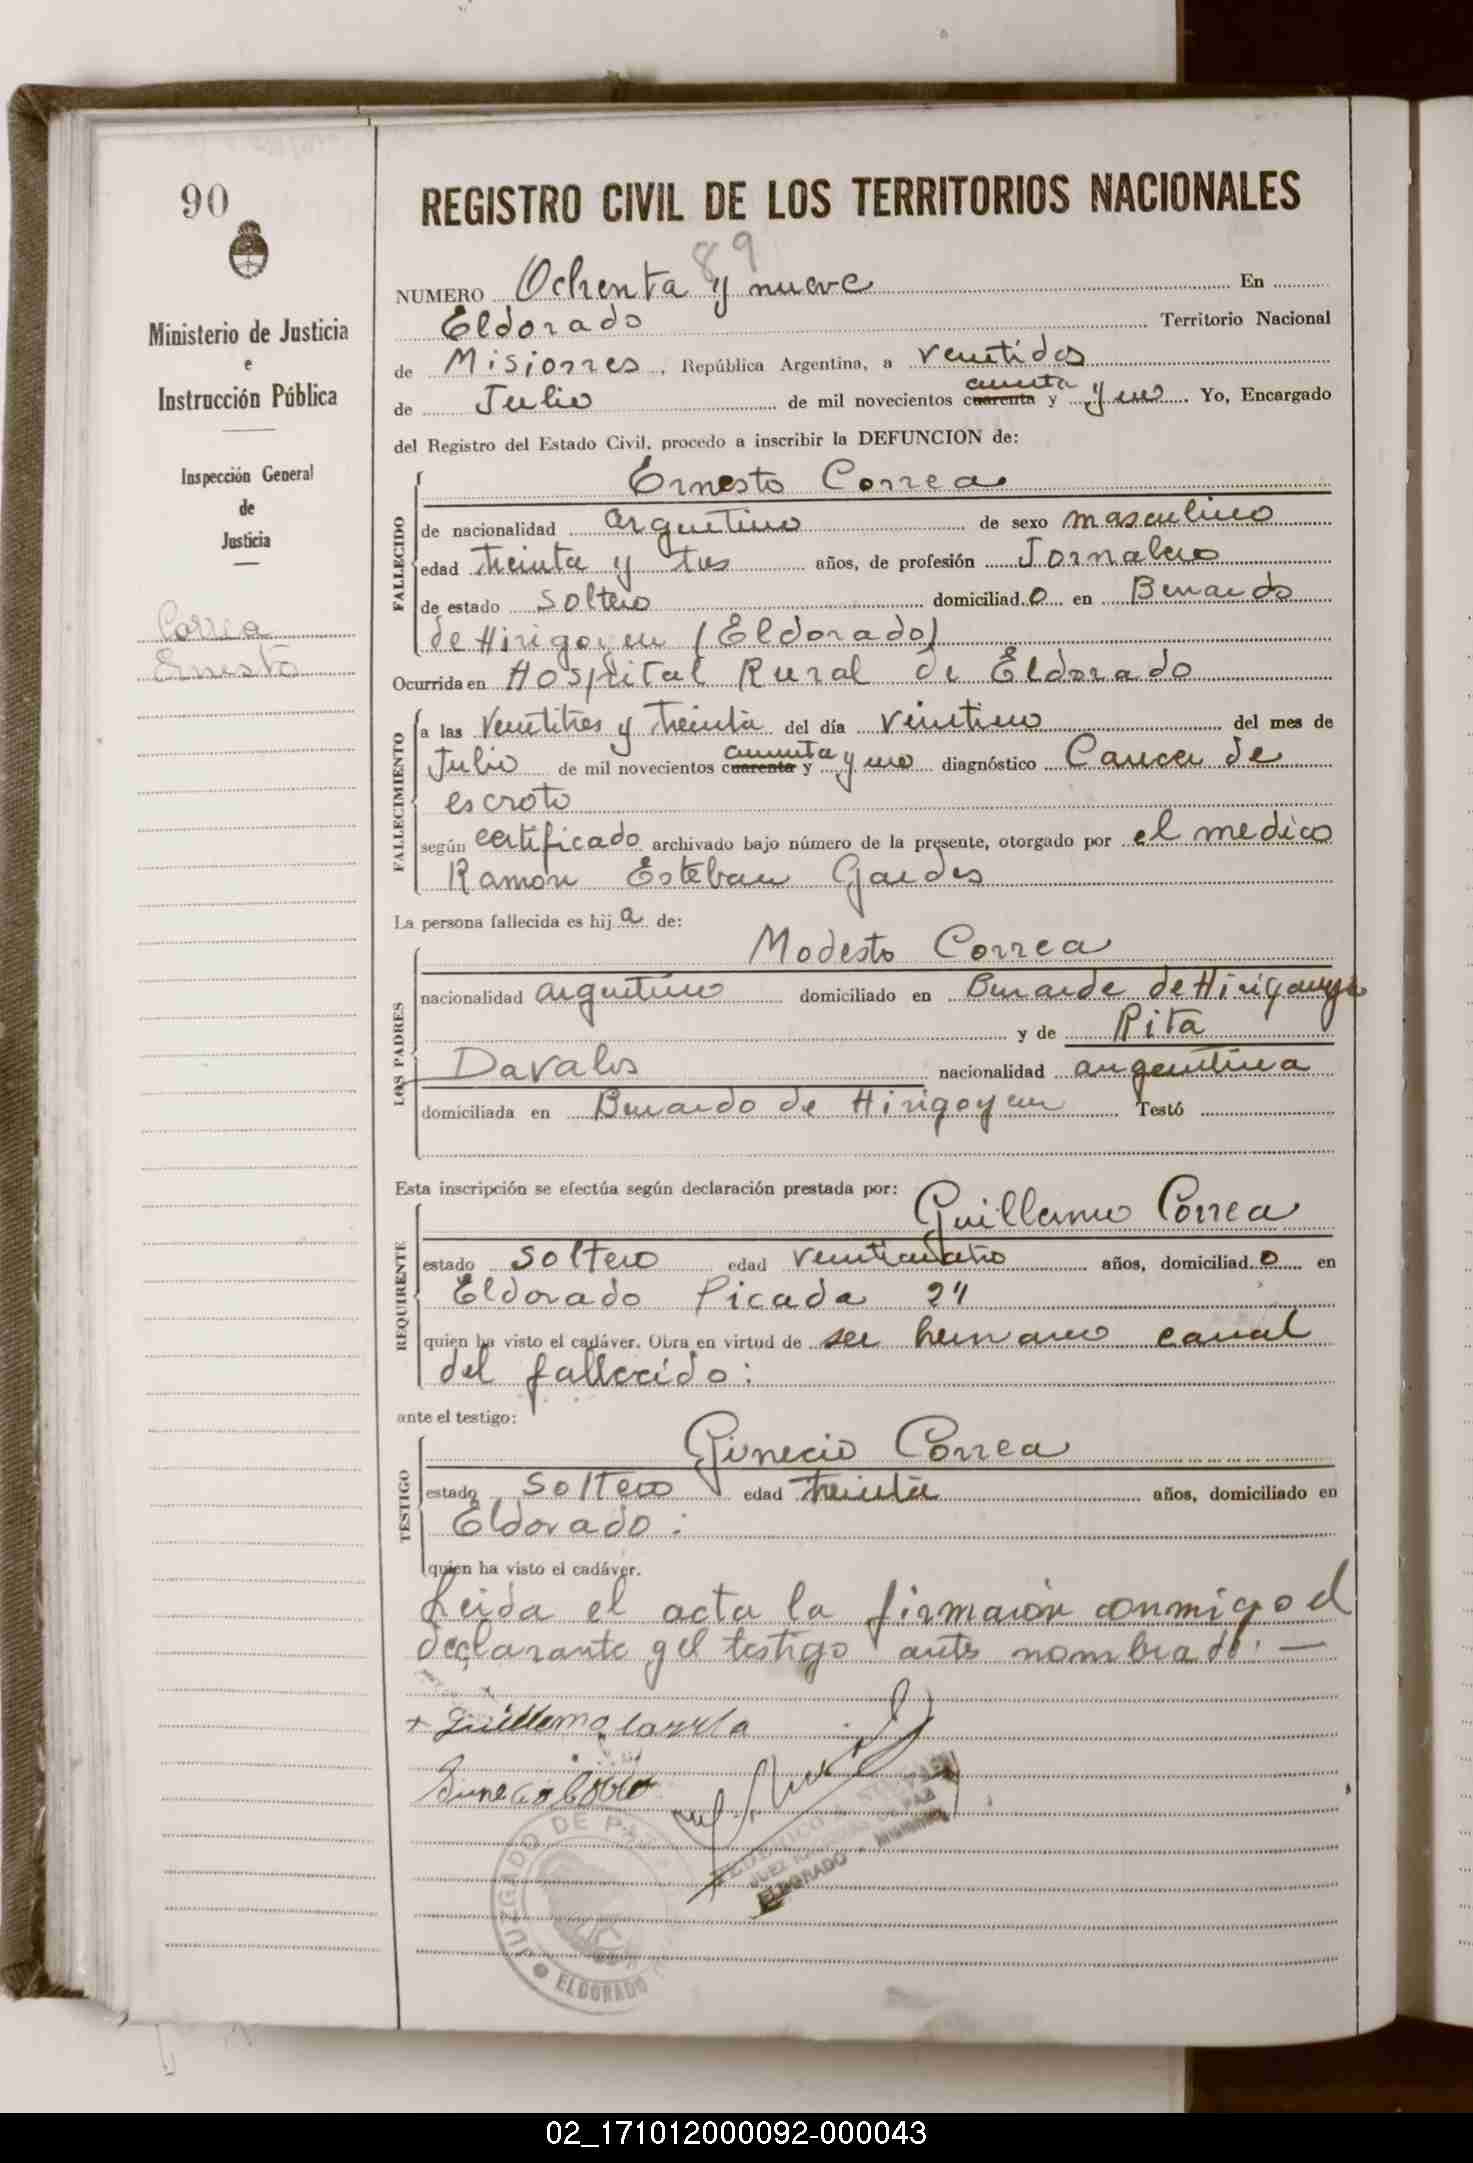 90
Ministerio de Justicia
e
Instrucción Pública
Inspección General
de
Justicia
Correa
Ernesto
REGISTRO CIVIL DE LOS TERRITORIOS NACIONALES
89
NUMERO Ochenta y nueve En
Eldorado Territorio Nacional
de Misiones, República Argentina, a ventidos
de Julio de mil novecientos cuarenta cincuenta y y uno. Yo, Encargado
del Registro del Estado Civil, procedo a inscribir la DEFUNCION de:
FALLECIDO
Ernesto Correa
de nacionalidad argentino de sexo masculino
edad treinta y tres años, de profesión Jornalero
de estado soltero domiciliad o en Bernardo
de Hirigoyen (Eldorado)
Ocurrida en Hospital Rural de Eldorado
FALLECIMIENTO
a las ventitres y treinta del día vintiuno del mes de
Julio de mil novecientos cuarenta cincuenta y y uno diagnóstico Cancer de
escroto
según certificado archivado bajo número de la presente, otorgado por el medico
Ramon Esteban
La persona fallecida es hij a de:
LOS PADRES
Modesto Correa
nacionalidad argentino domiciliado en Bernardo de Hirigoyen
y de Rita
Davalos nacionalidad argentina
domiciliada en Bernardo de Hirigoyen Testó
Esta inscripción se efectúa según declaración prestada por:
REQUIRENTE
Guillermo Correa
estado soltero edad venticuatro años, domiciliad o en
Eldorado Picada
quien ha visto el cadáver. Obra en virtud de ser hermano carnal
del fallecido:
ante el testigo:
TESTIGO
Ginecio Correa
estado soltero edad treinta años, domiciliado en
Eldorado:
quien ha visto el cadáver.
Leida el acta la firmaron conmigo el
declarante y el testigo antes nombrado. —
+ Guillermo Correa
JUZGADO DE PAZ
ELDORADO
JUEZ NACIONAL DE PAZ
ELDORADO - Misiones
02_171012000092-000043